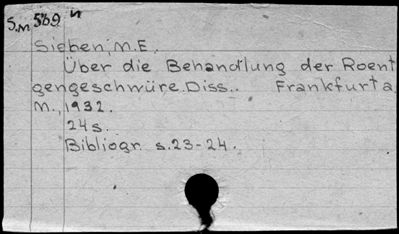 S.M 569.
Sieben, M.E.
Über die Behandlung der Roent
gengeschwüre. Diss.. Frankfurt a
M., 1932.
24 s.
Bibliogr. s. 23-24.